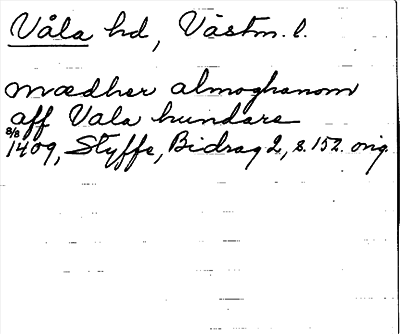 Våla hd, Västm. l.
mædher almoghanom
aff Vala hundare
8/8 1409, Styffe, Bidrag 2, s. 152. orig.